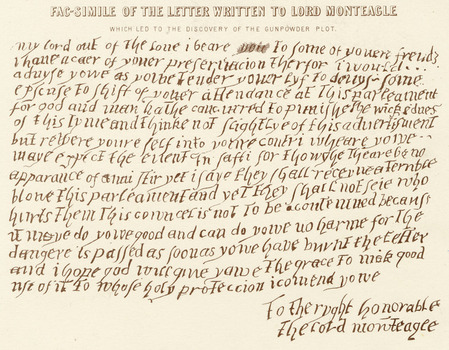 FAC-SIMILE OF THE LETTER WRITTEN TO LORD MONTEAGLE
WHICH LED TO THE DISCOVERY OF THE GUNPOWDER PLOT.
my lord out of the love i beare yowe To some of youere frends
i have a caer of youer preseruacion therfor i would
aduyse yowe as yowe Tender youer lyf To devys some
epscuse to shift of youer attendance at This parleament
for god and man hathe concurred to punishe the wickednes
of this Tyme and thinke not slightlye of this advertisment
but retyere youre self into youre contri wheare yowe
maye expect the event in safti for thowghe Theare be no
apparance of anni stir yet i saye they shall receyve a Terrible
blowe this parleament and yet They shall not seie who
hurts Them This councel is not To be acontemned because
it maye do yowe good and can do yowe no harme for The
dangere is passed as soon as yowe have burnt the letter
and i hope god will give yowe The grace To mak good
use of it To whose holy proteccion i comend yowe
To the ryght honorable
The lord monteagle